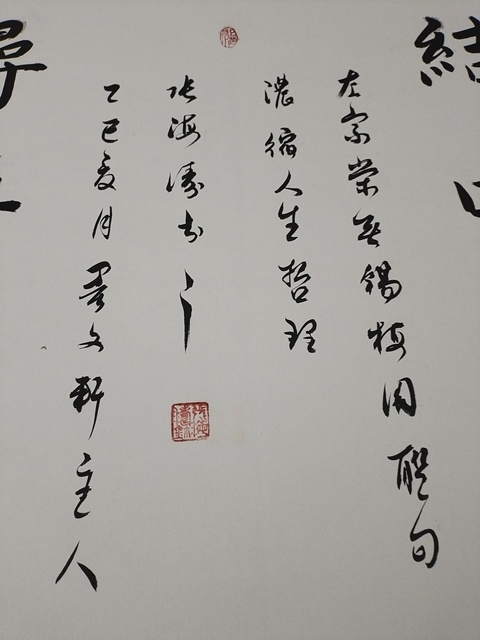 結
左宗棠無錫梅园聯句
濃縮人生哲理
张海濤书
乙巳夏月墨文軒主人
尋